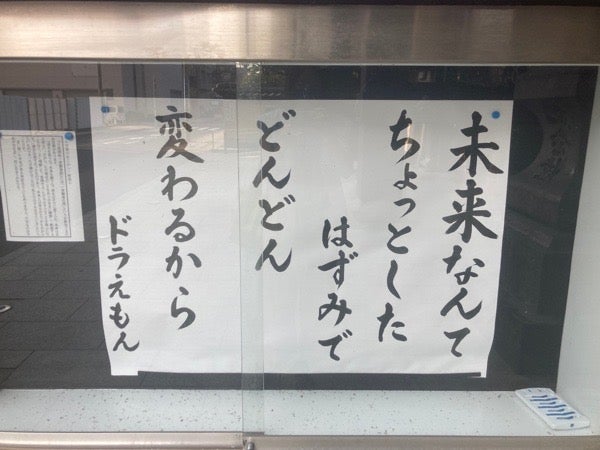 未来なんて
ちょっとした
はずみで
どんどん
変わるから
ドラえもん